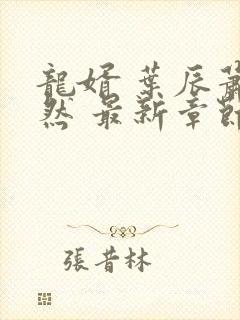 龍婿 葉辰蕭
然 最新章節
張昔林